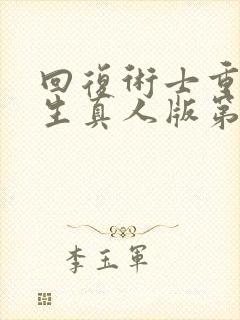 回復術士重
生真人版第
李玉軍